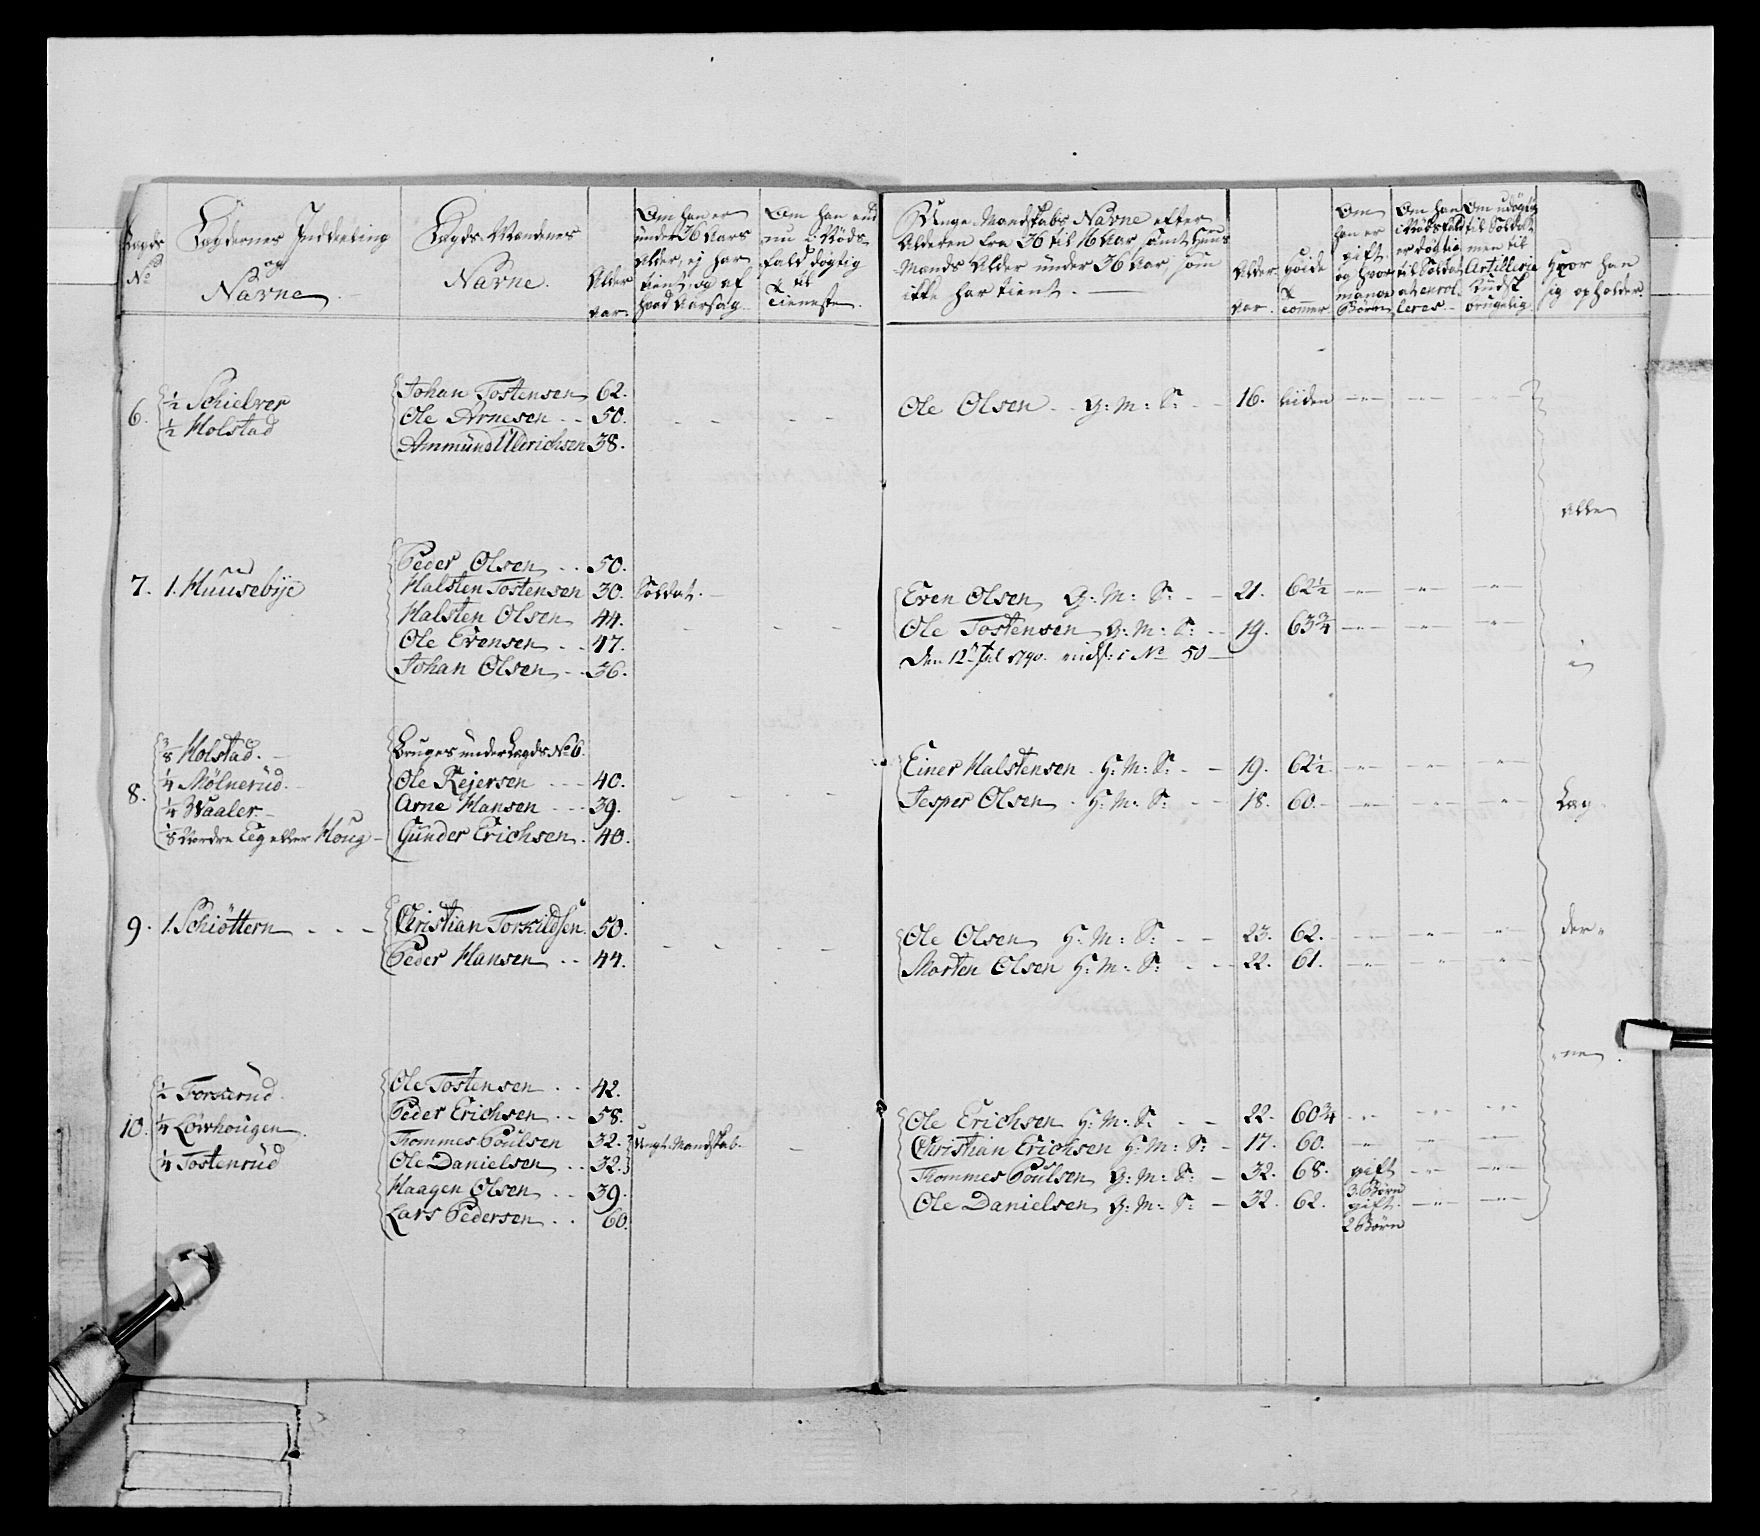 Lagds
No
Lagdernes Inddeeling
og
Navne.
Lagds-Mændenes
Navne.
Alder
Aar.
Om han er
under 36 Aars
Alder, ej har
tient, og af
hvad Aarsag.
Om han end
nu i Nøds-
fald dygtig
til
Tieneste.
Unge-Mandskabs Navne efter
Alderen fra 36 til 16 Aar samt Huus
Mænds Alder under 36 Aar som
ikke har tient.
Alder
Aar.
Høide
Tommer
Om
han er
gift
og hvor
mange
Børn
Om han
i Nødsfald
er dygtig
til Soldat
at enrol-
leres
Om udygtig
til Soldat
men til
Artillerie
Kudsk
brugelig.
Hvor han
sig opholder.
6. ½ Schielver
½ Holstad
Johan Tostensen 62.
Ole Arnesen 50.
Ammund Uldrichsen 38.
Ole Olsen G: M: S: 16. liiden
alle
7. 1. Huusebye
Peder Olsen 50.
Halsten Tostensen 30. Soldat.
Halsten Olsen 44.
Ole Evensen 47.
Johan Olsen 36.
Even Olsen G: M: S: 21. 62½
Ole Tostensen G: M: S: 19. 63¾
Den 12te Jul 1790. inds: i No 50
i
8. ⅜ Holstad.
¼ Mølnerud.
¼ Waaler
⅛ Nordre Eeg eller Houg
Bruges under Lagds No 6.
Ole Rejersen 40.
Arne Hansen 39.
Gunder Erichsen 40.
Einer Halstensen H: M: S: 19. 62½
Jesper Olsen H: M: S: 18. 60.
Lag-
9. 1. Schiøttern
Christian Torkildsen 50.
Peder Hansen 44.
Ole Olsen H: M: S: 23. 62.
Morten Olsen H: M: S: 22. 61.
der-
ne
10. ½ Torkerud.
¼ Løvhougen.
¼ Tostenrud
Ole Tostensen 42.
Peder Erichsen 58.
Tommes Poulsen 32. Ungt-Mandskab.
Ole Danielsen 32.
Haagen Olsen 39.
Lars Pedersen 60.
Ole Erichsen H: M: S: 22. 60¾
Christian Erichsen H: M: S: 17. 60.
Tommes Poulsen G: M: S: 32. 68. gift
3 Børn
Ole Danielsen G: M: S: 32. 62. gift.
2 Børn